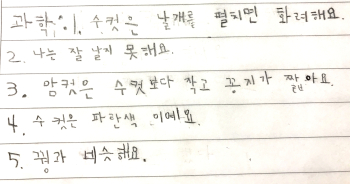 과학 : 1. 수컷은 날개를 펼치면 화려해요.
2. 나는 잘 날지 못해요.
3. 암컷은 수컷보다 작고 꽁지가 짧아요.
4. 수컷은 파란색이에요.
5. 꿩과 비슷해요.